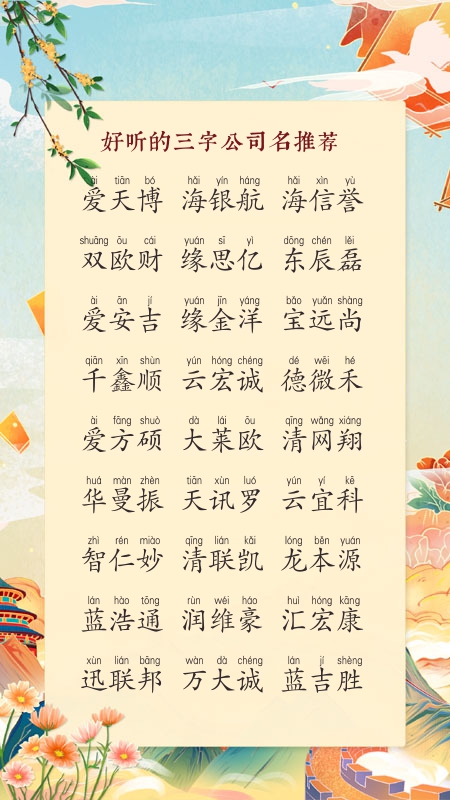 好听的三字公司名推荐
ài tiān bó hǎi yín háng hǎi xìn yù
爱天博 海银航 海信誉
shuāng ōu cái yuán sī yì dōng chén lěi
双欧财 缘思亿 东辰磊
ài ān jí yuán jīn yáng bǎo yuǎn shàng
爱安吉 缘金洋 宝远尚
qiān xīn shùn yún hóng chéng dé wēi hé
千鑫顺 云宏诚 德微禾
ài fāng shuò dà lái ōu qīng wǎng xiáng
爱方硕 大莱欧 清网翔
huá màn zhèn tiān xùn luó yún yí kē
华曼振 天讯罗 云宜科
zhì rén miào qīng lián kǎi lóng běn yuán
智仁妙 清联凯 龙本源
lán hào tōng rùn wéi háo huì hóng kāng
蓝浩通 润维豪 汇宏康
xùn lián bāng wàn dà chéng lán jí shèng
迅联邦 万大诚 蓝吉胜